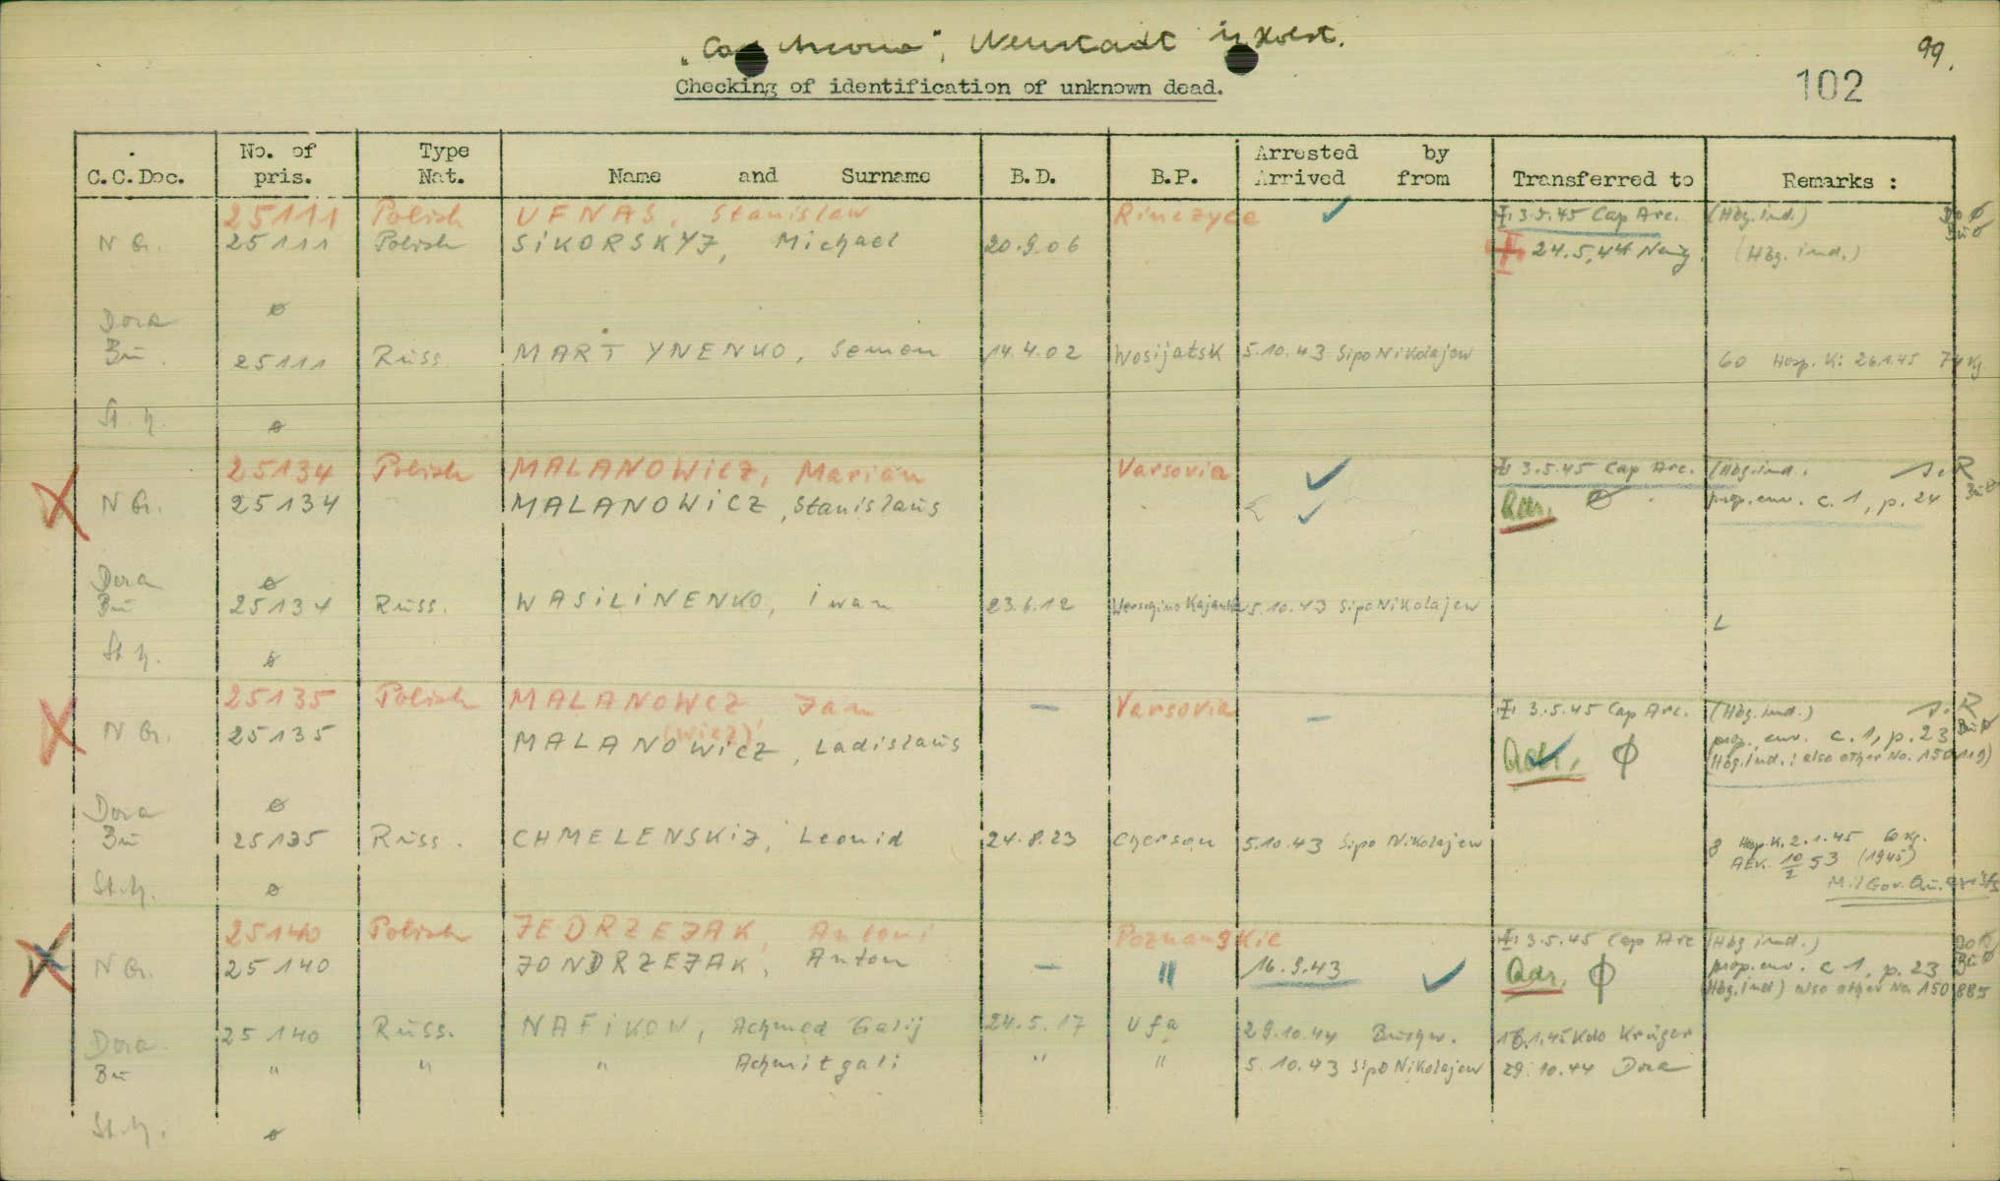 "Cap Arcona", Neustadt i/Holst.
99.
102
Checking of identification of unknown dead.
C.C.Doc. No. of pris. Type Nat. Name and Surname B.D. B.P. Arrested by Arrived from Transferred to Remarks :
25111 Polish UFNAS, Stanislaw Rinczyce ✓ I: 3.5.45 Cap Arc. (Hbg. ind.) Do ø Bu ø
N G. 25111 Polish SIKORSKYJ, Michael 20.9.06 24.5.44 (Hbg. ind.)
Dora ø
Bu. 25111 Russ MARTYNENKO, Semen 14.4.02 Wosijatsk 5.10.43 Sipo Nikolajew 60 Hosp. K: 26.1.45 74 kg
St. h. ø
25134 Polish MALANOWICZ, Marian Varsovia ✓ I: 3.5.45 Cap Arc. (Hbg. ind.
N G. 25134 MALANOWICZ, Stanislaus ✓ ø prop. env. c. 1, p. 24 Bu ø
Dora ø
Bu 25134 Russ. WASILINENKO, Iwan 23.6.12 5.10.43 Sipo Nikolajew L
St h. ø
25135 Polish MALANOWCZ Jan — Varsovia — I: 3.5.45 Cap Arc. (Hbg. ind.)
(wicz)
N G. 25135 MALANOWICZ, Ladislaus ø prop. env. c. 1, p. 23 Bu ø
(Hbg. ind.: also other No. 150119)
Dora ø
Bu 25135 Russ. CHMELENSKIJ, Leonid 24.8.23 Cherson 5.10.43 Sipo Nikolajew 8 Hosp. K. 2.1.45 60 kg.
53 (1945)
St. h. ø Mil Gov.
25140 Polish JEDRZEJAK, Antoni Poznanskie I: 3.5.45 Cap Arc (Hbg ind.) Do ø
N G. 25140 JONDRZEJAK, Anton — " 16.9.43 ✓ ø prop. env. c 1, p. 23 Bu ø
Hbg. ind) also other No. 150885
Dora 25140 Russ. NAFIKOW, Achmed Galij 24.5.17 Ufa 29.10.44 Buchw. 18.1.45 Kdo Krüger
Bu " " " Achmitgali " " 5.10.43 Sipo Nikolajew 29.10.44 Dora
St. h. ø